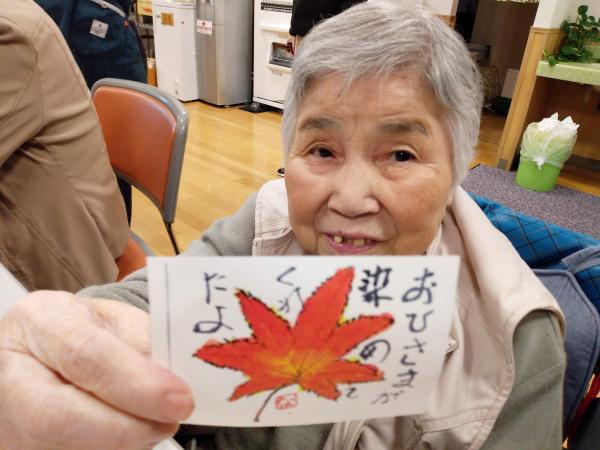 おひさまが
染めて
くれ
たよ